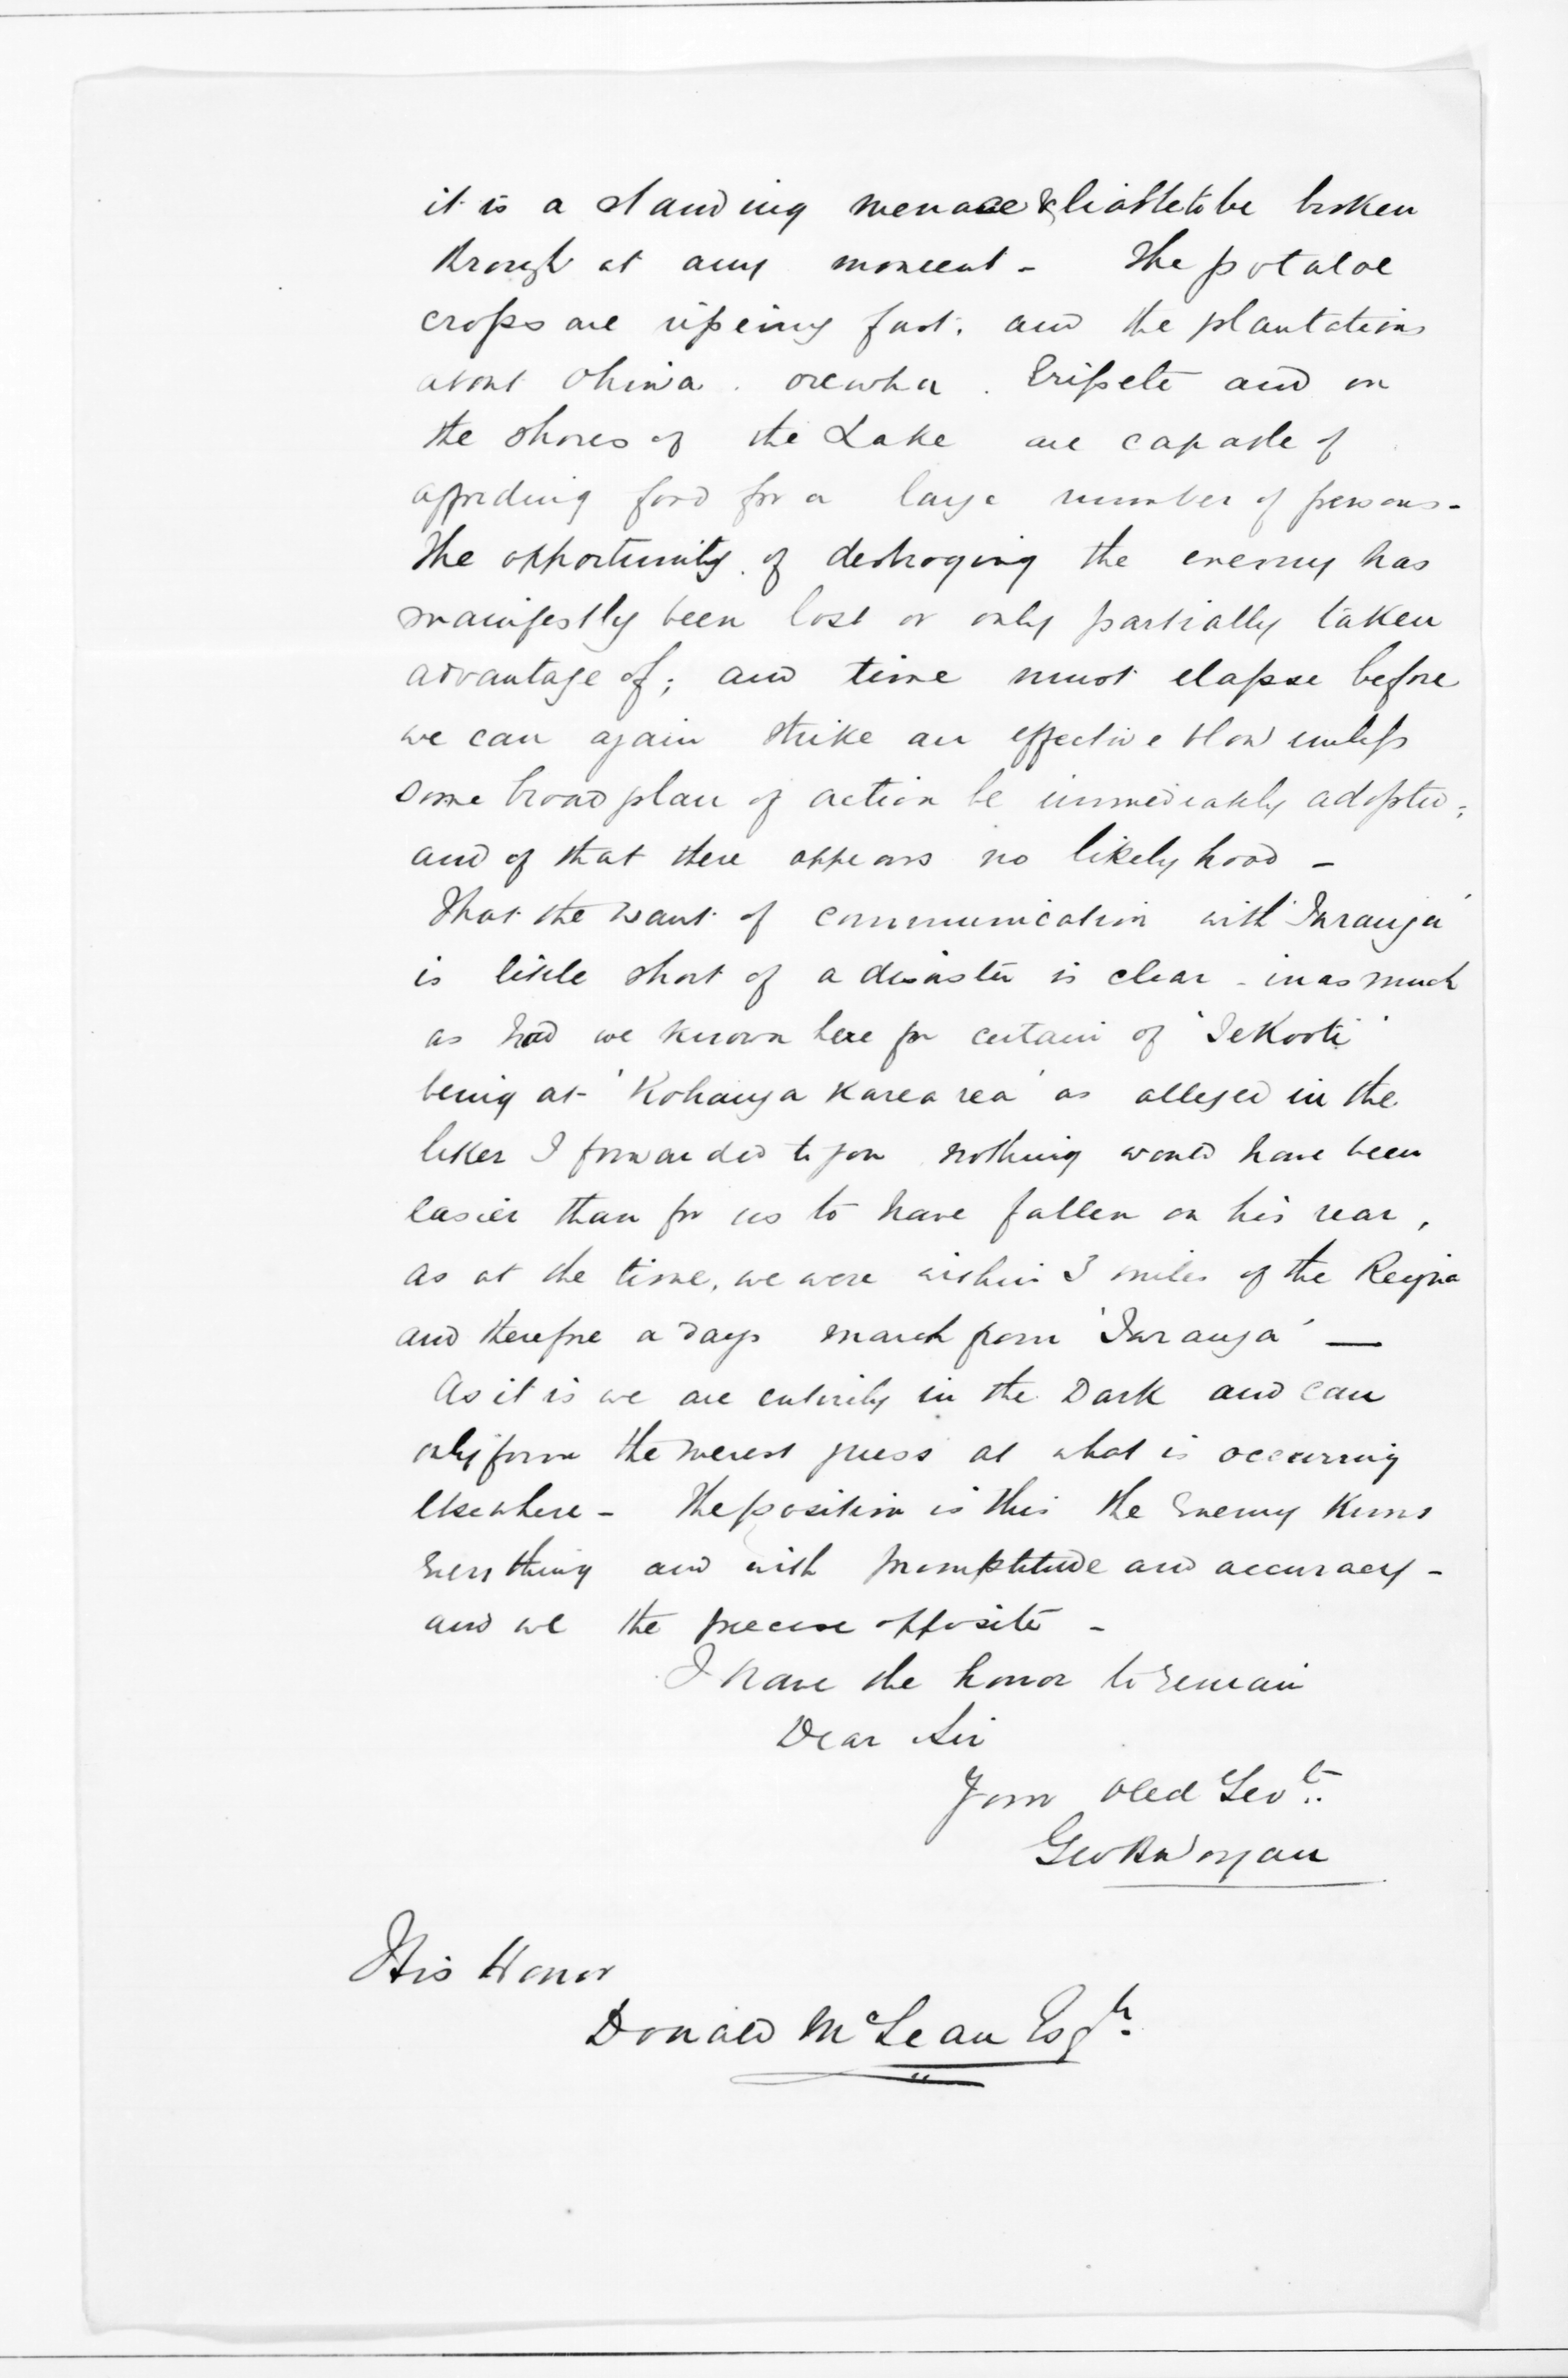 it is a standing menace & liable to be broken
through at any moment - The potatoe
crops are ripeing fast. and the plantations
about Ohiwa. orewha. Eripete and on
the shores of the Lake are capable of
affording food for a large number of persons -
The opportunity of destroying the enemy has
manifestly been lost or only partially taken
advantage of; and time must elapse before
we can again strike an effective blow unless
some broad plan of action be immediately adopted;
and of that there appears no likelyhood -
That the want of communication with 'Turanga'
is little short of a disaster is clear - in as much
as had we known here for certain of 'Te Kooti'
being at 'Kohanga Karearea' as alleged in the
letter I forwarded to you nothing would have been
easier than for us to have fallen on his rear,
as at the time, we were within 3 miles of the Reinga
and therefore a days march from 'Turanga' —
As it is we are entirely in the Dark and can
only form the merest guess at what is occurring
elsewhere - The position is this the Enemy knows
Every thing and with promptitude and accuracy -
and we the precise opposite -
I have the honor to remain
Dear Sir
Your obed Servt.
Geo Worgan
His Honor
Donald McLean Esqr.